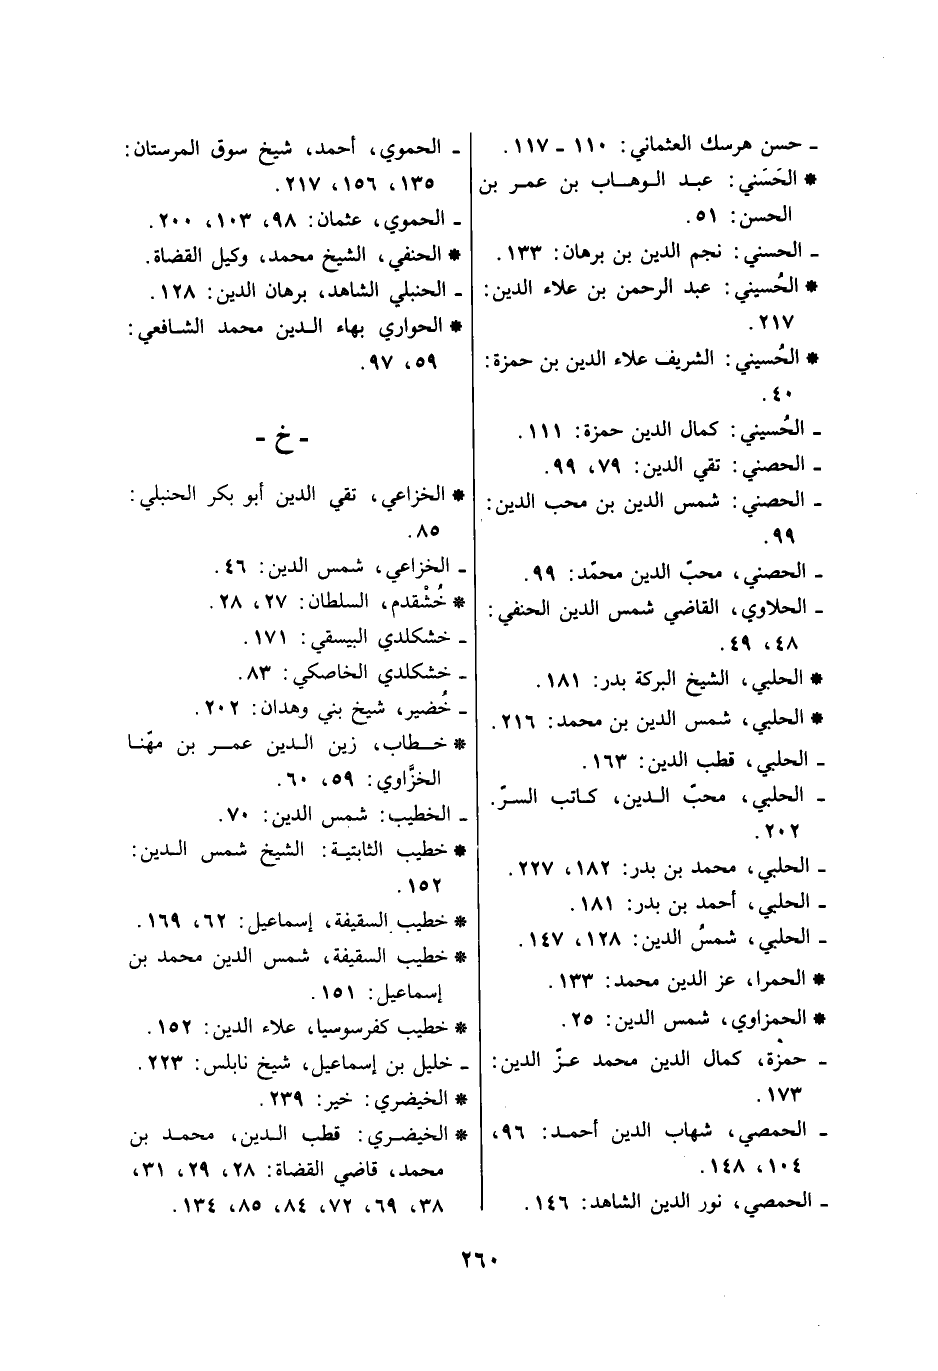 - حسن هرسك العثماني: ١١٠ - ١١٧.
* الحَسَني: عبد الوهاب بن عمر بن
الحسن: ٥١.
- الحسني: نجم الدين بن برهان: ١٣٣.
* الحُسيني: عبد الرحمن بن علاء الدين:
٢١٧.
* الحُسيني: الشريف علاء الدين بن حمزة:
٤٠.
- الحُسيني: كمال الدين حمزة: ١١١.
- الحصني: تقي الدين: ٧٩، ٩٩.
- الحصني: شمس الدين بن محب الدين:
٩٩.
- الحصني، محبّ الدين محمّد: ٩٩.
- الحلاوي، القاضي شمس الدين الحنفي:
٤٨، ٤٩.
* الحلبي، الشيخ البركة بدر: ١٨١.
* الحلبي، شمس الدين بن محمد: ٢١٦.
- الحلبي، قطب الدين: ١٦٣.
- الحلبي، محبّ الدين، كاتب السرّ.
٢٠٢.
- الحلبي، محمد بن بدر: ١٨٢، ٢٢٧.
- الحلبي، أحمد بن بدر: ١٨١.
- الحلبي، شمسُ الدين: ١٢٨، ١٤٧.
* الحمرا، عز الدين محمد: ١٣٣.
* الحمزاوي، شمس الدين: ٢٥.
- حمزة، كمال الدين محمد عزّ الدين:
١٧٣.
- الحمصي، شهاب الدين أحمد: ٩٦،
١٠٤، ١٤٨.
- الحمصي، نور الدين الشاهد: ١٤٦.
- الحموي، أحمد، شيخ سوق المرستان:
١٣٥، ١٥٦، ٢١٧.
- الحموي، عثمان: ٩٨، ١٠٣، ٢٠٠.
* الحنفي، الشيخ محمد، وكيل القضاة.
- الحنبلي الشاهد، برهان الدين: ١٢٨.
* الحواري بهاء الدين محمد الشافعي:
٥٩، ٩٧.
- خ -
* الخزاعي، تقي الدين أبو بكر الحنبلي:
٨٥.
- الخزاعي، شمس الدين: ٤٦.
* خُشْقدم، السلطان: ٢٧، ٢٨.
- خشكلدي البيسقي: ١٧١.
- خشكلدي الخاصكي: ٨٣.
- خُضير، شيخ بني وهدان: ٢٠٢.
* خطاب، زين الدين عمر بن مهّنا
الخزَّاوي: ٥٩، ٦٠.
- الخطيب: شمس الدين: ٧٠.
* خطيب الثابتية: الشيخ شمس الدين:
١٥٢.
* خطيب السقيفة، إسماعيل: ٦٢، ١٦٩.
* خطيب السقيفة، شمس الدين محمد بن
إسماعيل: ١٥١.
* خطيب كفرسوسيا، علاء الدين: ١٥٢.
- خليل بن إسماعيل، شيخ نابلس: ٢٢٣.
* الخيضري: خير: ٢٣٩.
* الخيضري: قطب الدين، محمد بن
محمد، قاضي القضاة: ٢٨، ٢٩، ٣١،
٣٨، ٦٩، ٧٢، ٨٤، ٨٥، ١٣٤.
٢٦٠